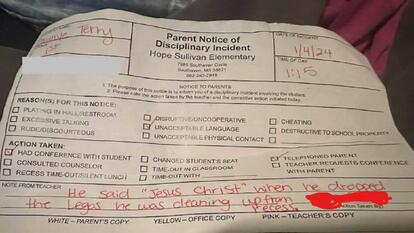 Terry
1st
Parent Notice of
Disciplinary Incident
Hope Sullivan Elementary
7985 Southaven Circle
Southaven, MS 38671
662-342-2919
DATE OF INCIDENT
1/4/24
TIME OF DAY
1:15
NOTICE TO PARENTS
1. The purpose of this notice is to inform you of a disciplinary incident involving the student.
2. Please note the action taken by the teacher and the corrective action initiated today.
REASON(S) FOR THIS NOTICE:
PLAYING IN HALL/RESTROOM
DISRUPTIVE/UNCOOPERATIVE
CHEATING
EXCESSIVE TALKING
UNACCEPTABLE LANGUAGE
DESTRUCTIVE TO SCHOOL PROPERTY
RUDE/DISCOURTEOUS
UNACCEPTABLE PHYSICAL CONTACT
ACTION TAKEN:
HAD CONFERENCE WITH STUDENT
CHANGED STUDENT'S SEAT
TELEPHONED PARENT
CONSULTED COUNSELOR
TIME-OUT IN CLASSROOM
TEACHER REQUESTS CONFERENCE
WITH PARENT
RECESS TIME-OUT/SILENT LUNCH
TIME-OUT WITH
NOTE FROM TEACHER
He said "Jesus Christ" when he dropped
the Legos he was cleaning up from
recess.
WHITE- PARENT'S COPY YELLOW - OFFICE COPY PINK - TEACHER'S COPY